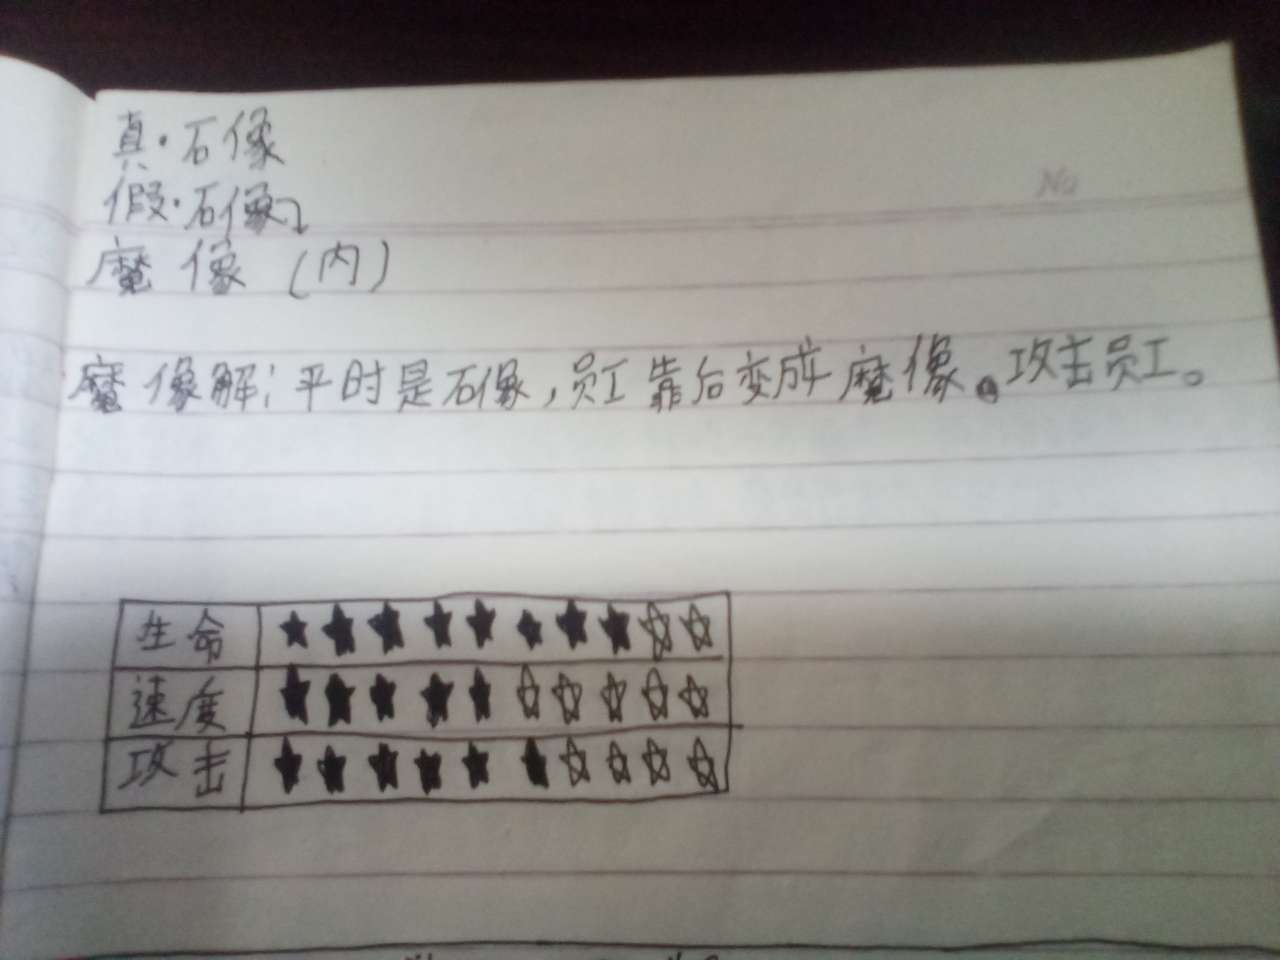 真·石像
假·石像
魔像（内）
No
魔像解：平时是石像，员工靠后变成魔像。攻击员工。
生命 ★★★★★★★★☆☆
速度 ★★★★★☆☆☆☆☆
攻击 ★★★★★★☆☆☆☆